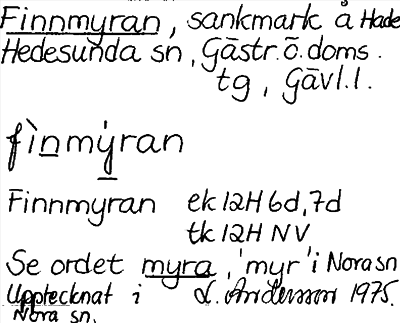 Finnmyran, sankmark å Hade
Hedesunda sn, Gästr. ö. doms.
tg, Gävl. l.
fìnmýran
Finnmyran ek 12H 6d, 7d
tk 12H NV
Se ordet myra, 'myr' i Nora sn
Upptecknat i L. Andersson 1975.
Nora sn.